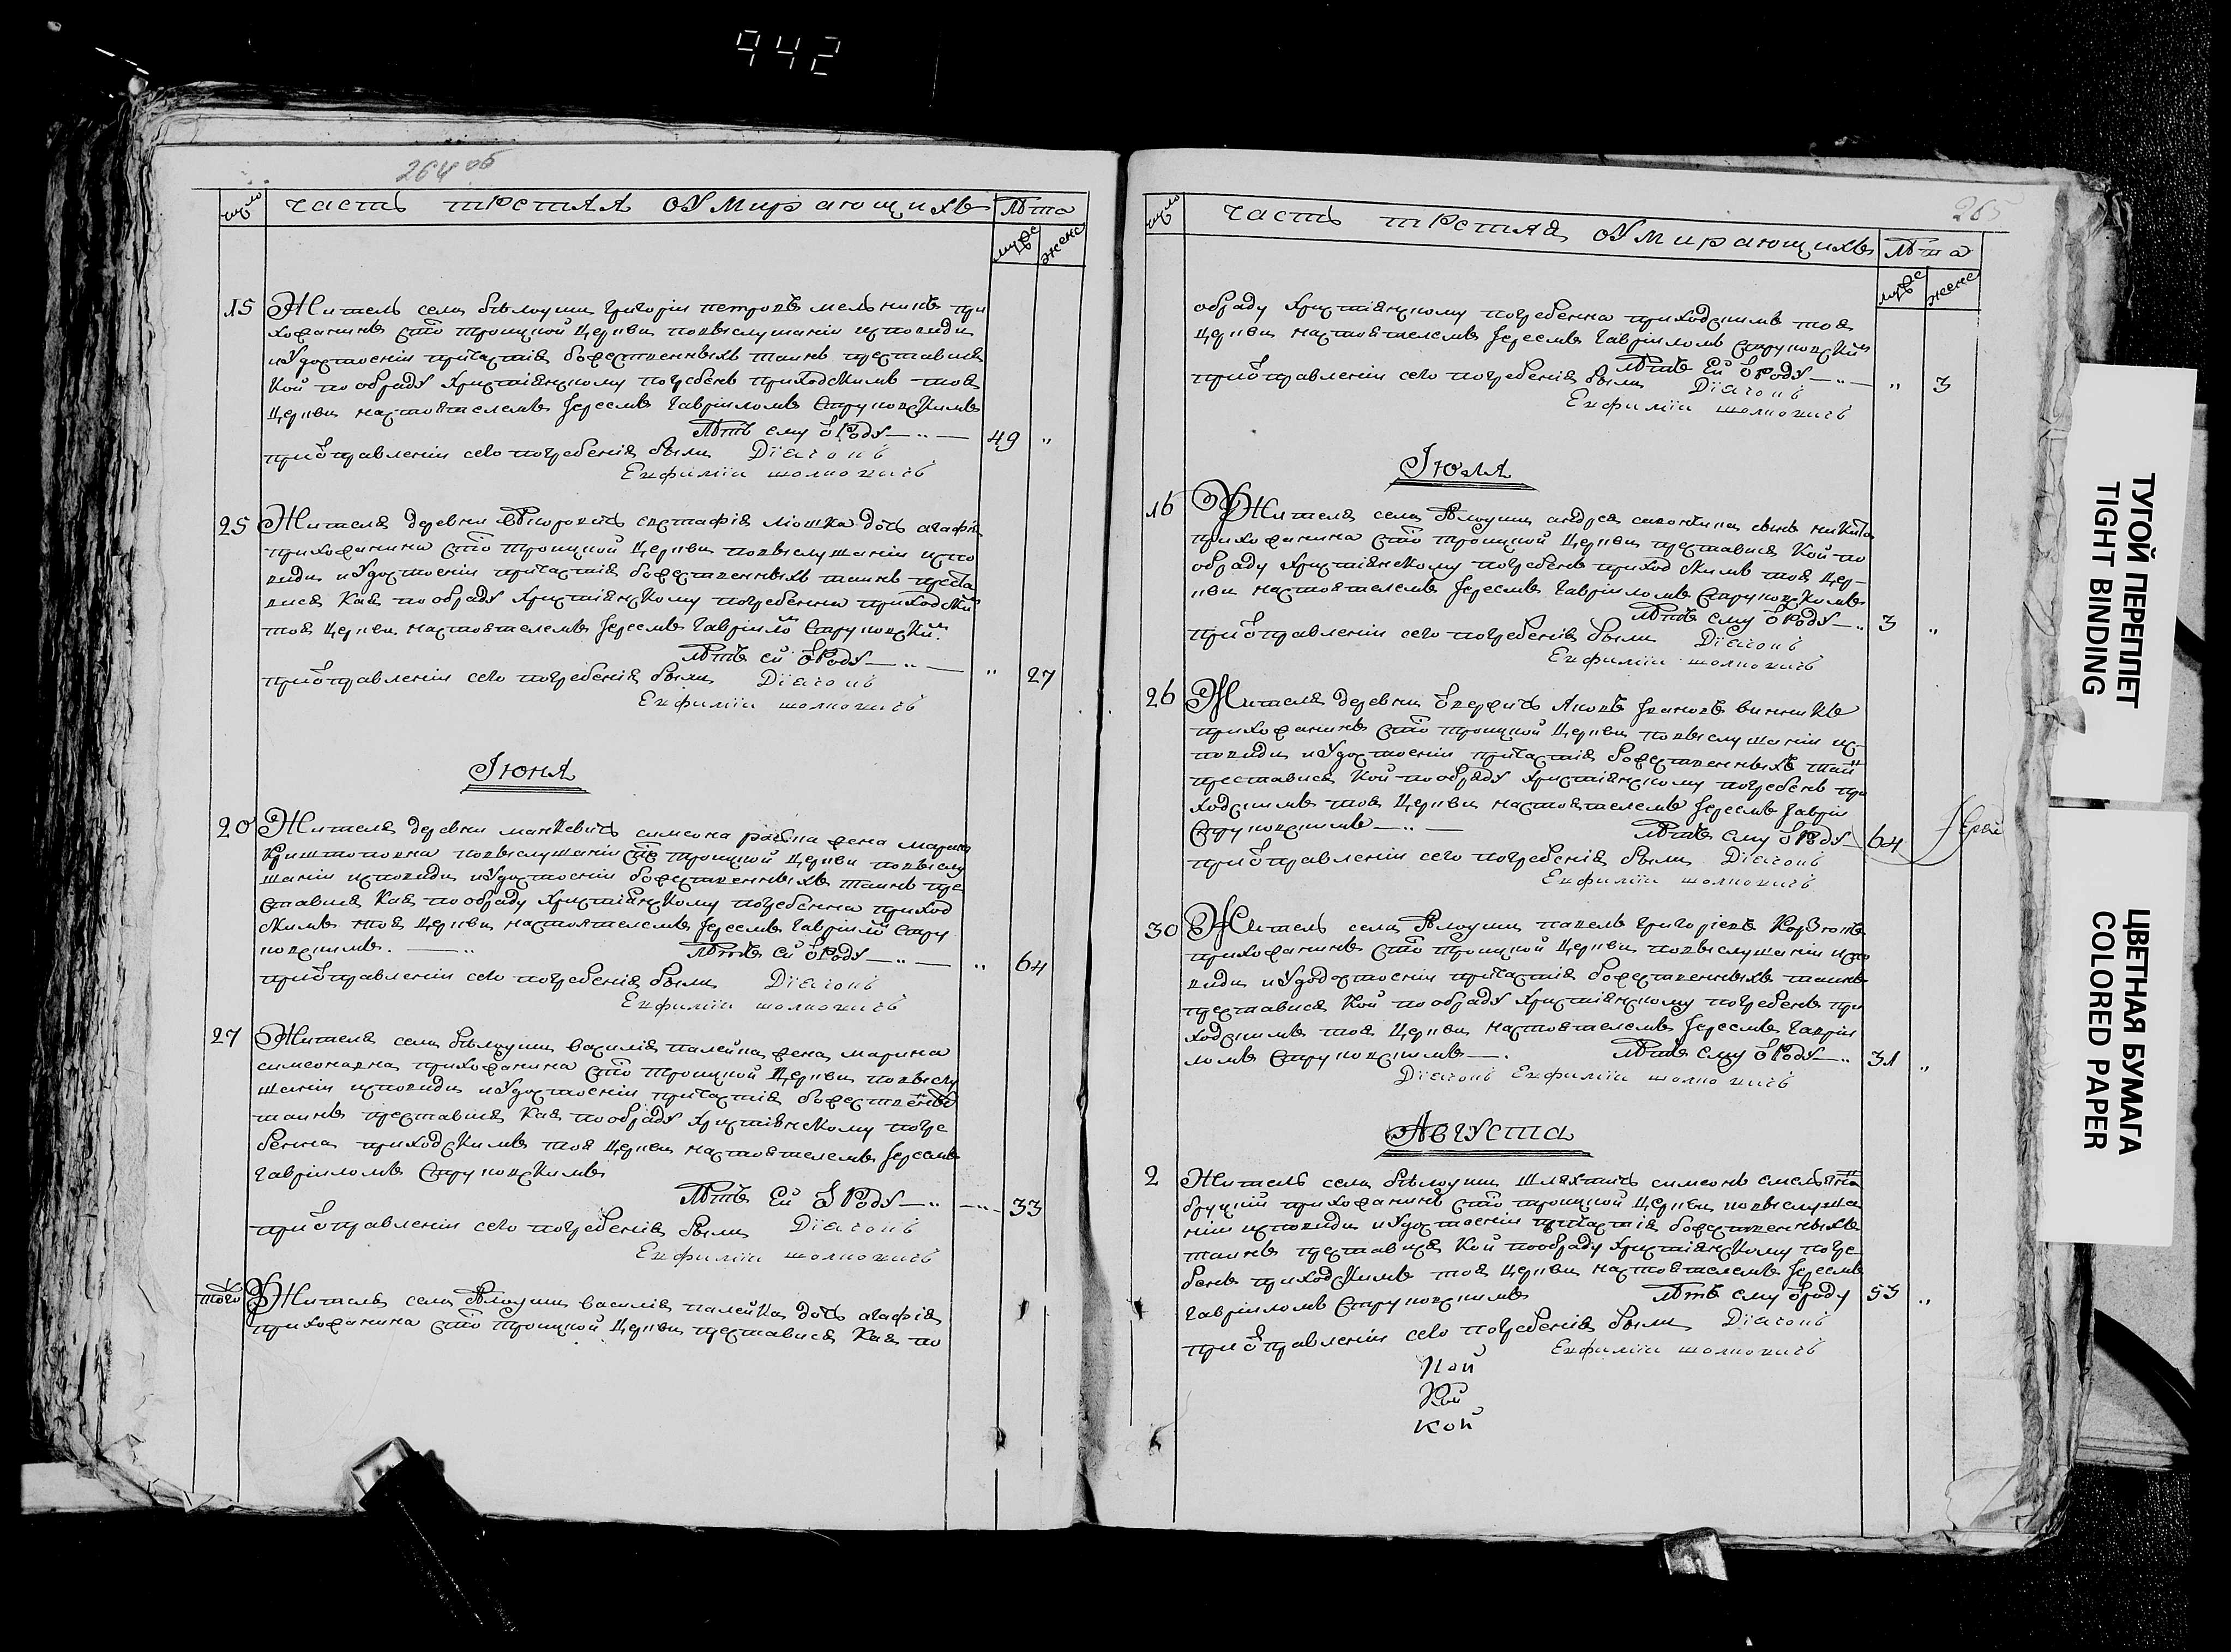 942
264 об
число часть третяя оумирающихъ Лѣта
мужс женс
15 Житель села бѣлоуши григорій петровъ мельникъ при
хожанинъ сто троицкой церкви повыслушаніи исповиди
иУдостоеніи причастія божественныхъ таинъ преставися
Кой пообряду христіянскому погребенъ приходскимъ тоя
церкви настоятелемъ Іереемъ гавріиломъ Струковскимъ
Лѣтъ ему ѿ РодУ 49 „
приѿправленіи сего погребенія были Діаконъ
Екфимїи шолкович
25 Жителя деревни
прихожанина сто троицкой церкви повыслушаніи испо
види иУдостоеніи причастія божественныхъ таинъ преста
вися Кая пообрядУ христіянскому погребенна приходски
тоя церкви настоятелемъ Іереемъ гавріило Струковски.
Лѣтъ ей ѿ РодУ „ 27
приѿправленіи сего погребенія были Діаконъ
Екфимїи шолкович
Іюня
20 Жителя деревни манкевич симеона жена марина
повыслушаніи сто троицкой церкви повыслу
шаніи исповиди иУдостоеніи божественныхъ таинъ пре
ставися Кая пообряду христіянскому погребенна приход
скимъ тоя церкви настоятелемъ Іереемъ гавріило Стру
ковскимъ. Лѣтъ ей ѿ РодУ „ 64
приѿправленіи сего погребенія были Діаконъ
Екфимїи шолкович
27 Жителя села бѣлоуши василія палейка жена марина
симеоновна прихожанина сто троицкой церкви повыслу
шаніи исповиди иУдостоеніи причастія божественны
таинъ преставися Кая пообряду христіянскому погре
бенна приходскимъ тоя церкви настоятелемъ Іереемъ
гавріиломъ Струковскимъ
Лѣтъ Ей ѿ РодУ 33
приѿправленіи сего погребенія были Діаконъ
Екфимїи шолкович
того Жителя села бѣлоуши василія палейка дочь агафія
прихожанина сто троицкой церкви преставися Кая по
265
число часть третяя оумирающихъ Лѣта
мужс женс
обряду христіянскому погребенна приходскимъ тоя
церкви настоятелемъ Іереемъ гавріиломъ Струковски
Лѣтъ Ей ѿ РодУ „ 3
приѿправленіи сего погребенія были Діаконъ
Екфимїи шолкович
Іюля
16 Жителя села бѣлоуши андрея сынъ никита
прихожанина сто троицкой церкви преставися Кой по
обряду христіянскому погребенъ приходскимъ тоя цер-
кви настоятелемъ Іереемъ гавріиломъ Струковскимъ
Лѣтъ ему ѿ РодУ 3 „
приѿправленіи сего погребенія были Діаконъ
Екфимїи шолкович
26 Жителя деревни Яковъ Івановъ винникъ
прихожанинъ сто троицкой церкви повыслушаніи ис-
повиди иУдостоеніи причастія божественныхъ таи
преставися Кой пообрядУ христіянскому погребенъ при
ходскимъ тоя церкви настоятелемъ Іереемъ гавріи
Струковскимъ Лѣтъ ему ѿ РодУ 64
приѿправленіи сего погребенія были Діаконъ
Екфимїи шолкович
30 Житель села бѣлоуши павелъ григоріевъ Корзюкъ
прихожанинъ сто троицкой церкви повыслушаніи испо
види иУдодостоеніи причастія божественныхъ таинъ
преставися Кой пообрядУ христіянскому погребенъ при
ходскимъ тоя церкви настоятелемъ Іереемъ гавріи
ломъ Струковскимъ. Лѣтъ ему ѿ РодУ 31 „
Діаконъ Екфимїи шолкович
Августа
2 Житель села бѣлоуши шляхтичъ симеонъ
прихожанинъ сто троицкой церкви повыслуша
ніи исповиди иУдостоеніи причастія божественныхъ
таинъ преставися Кой пообряду христіянскому погре-
бенъ приходскимъ тоя церкви настоятелемъ Іереемъ
гавріиломъ Струковскимъ Лѣтъ ему ѿроду 53 „
приѿправленіи сего погребенія были Діаконъ
Екфимїи шолкович
Кой
Кой
Кой
ТУГОЙ ПЕРЕПЛЕТ
TIGHT BINDING
ЦВЕТНАЯ БУМАГА
COLORED PAPER